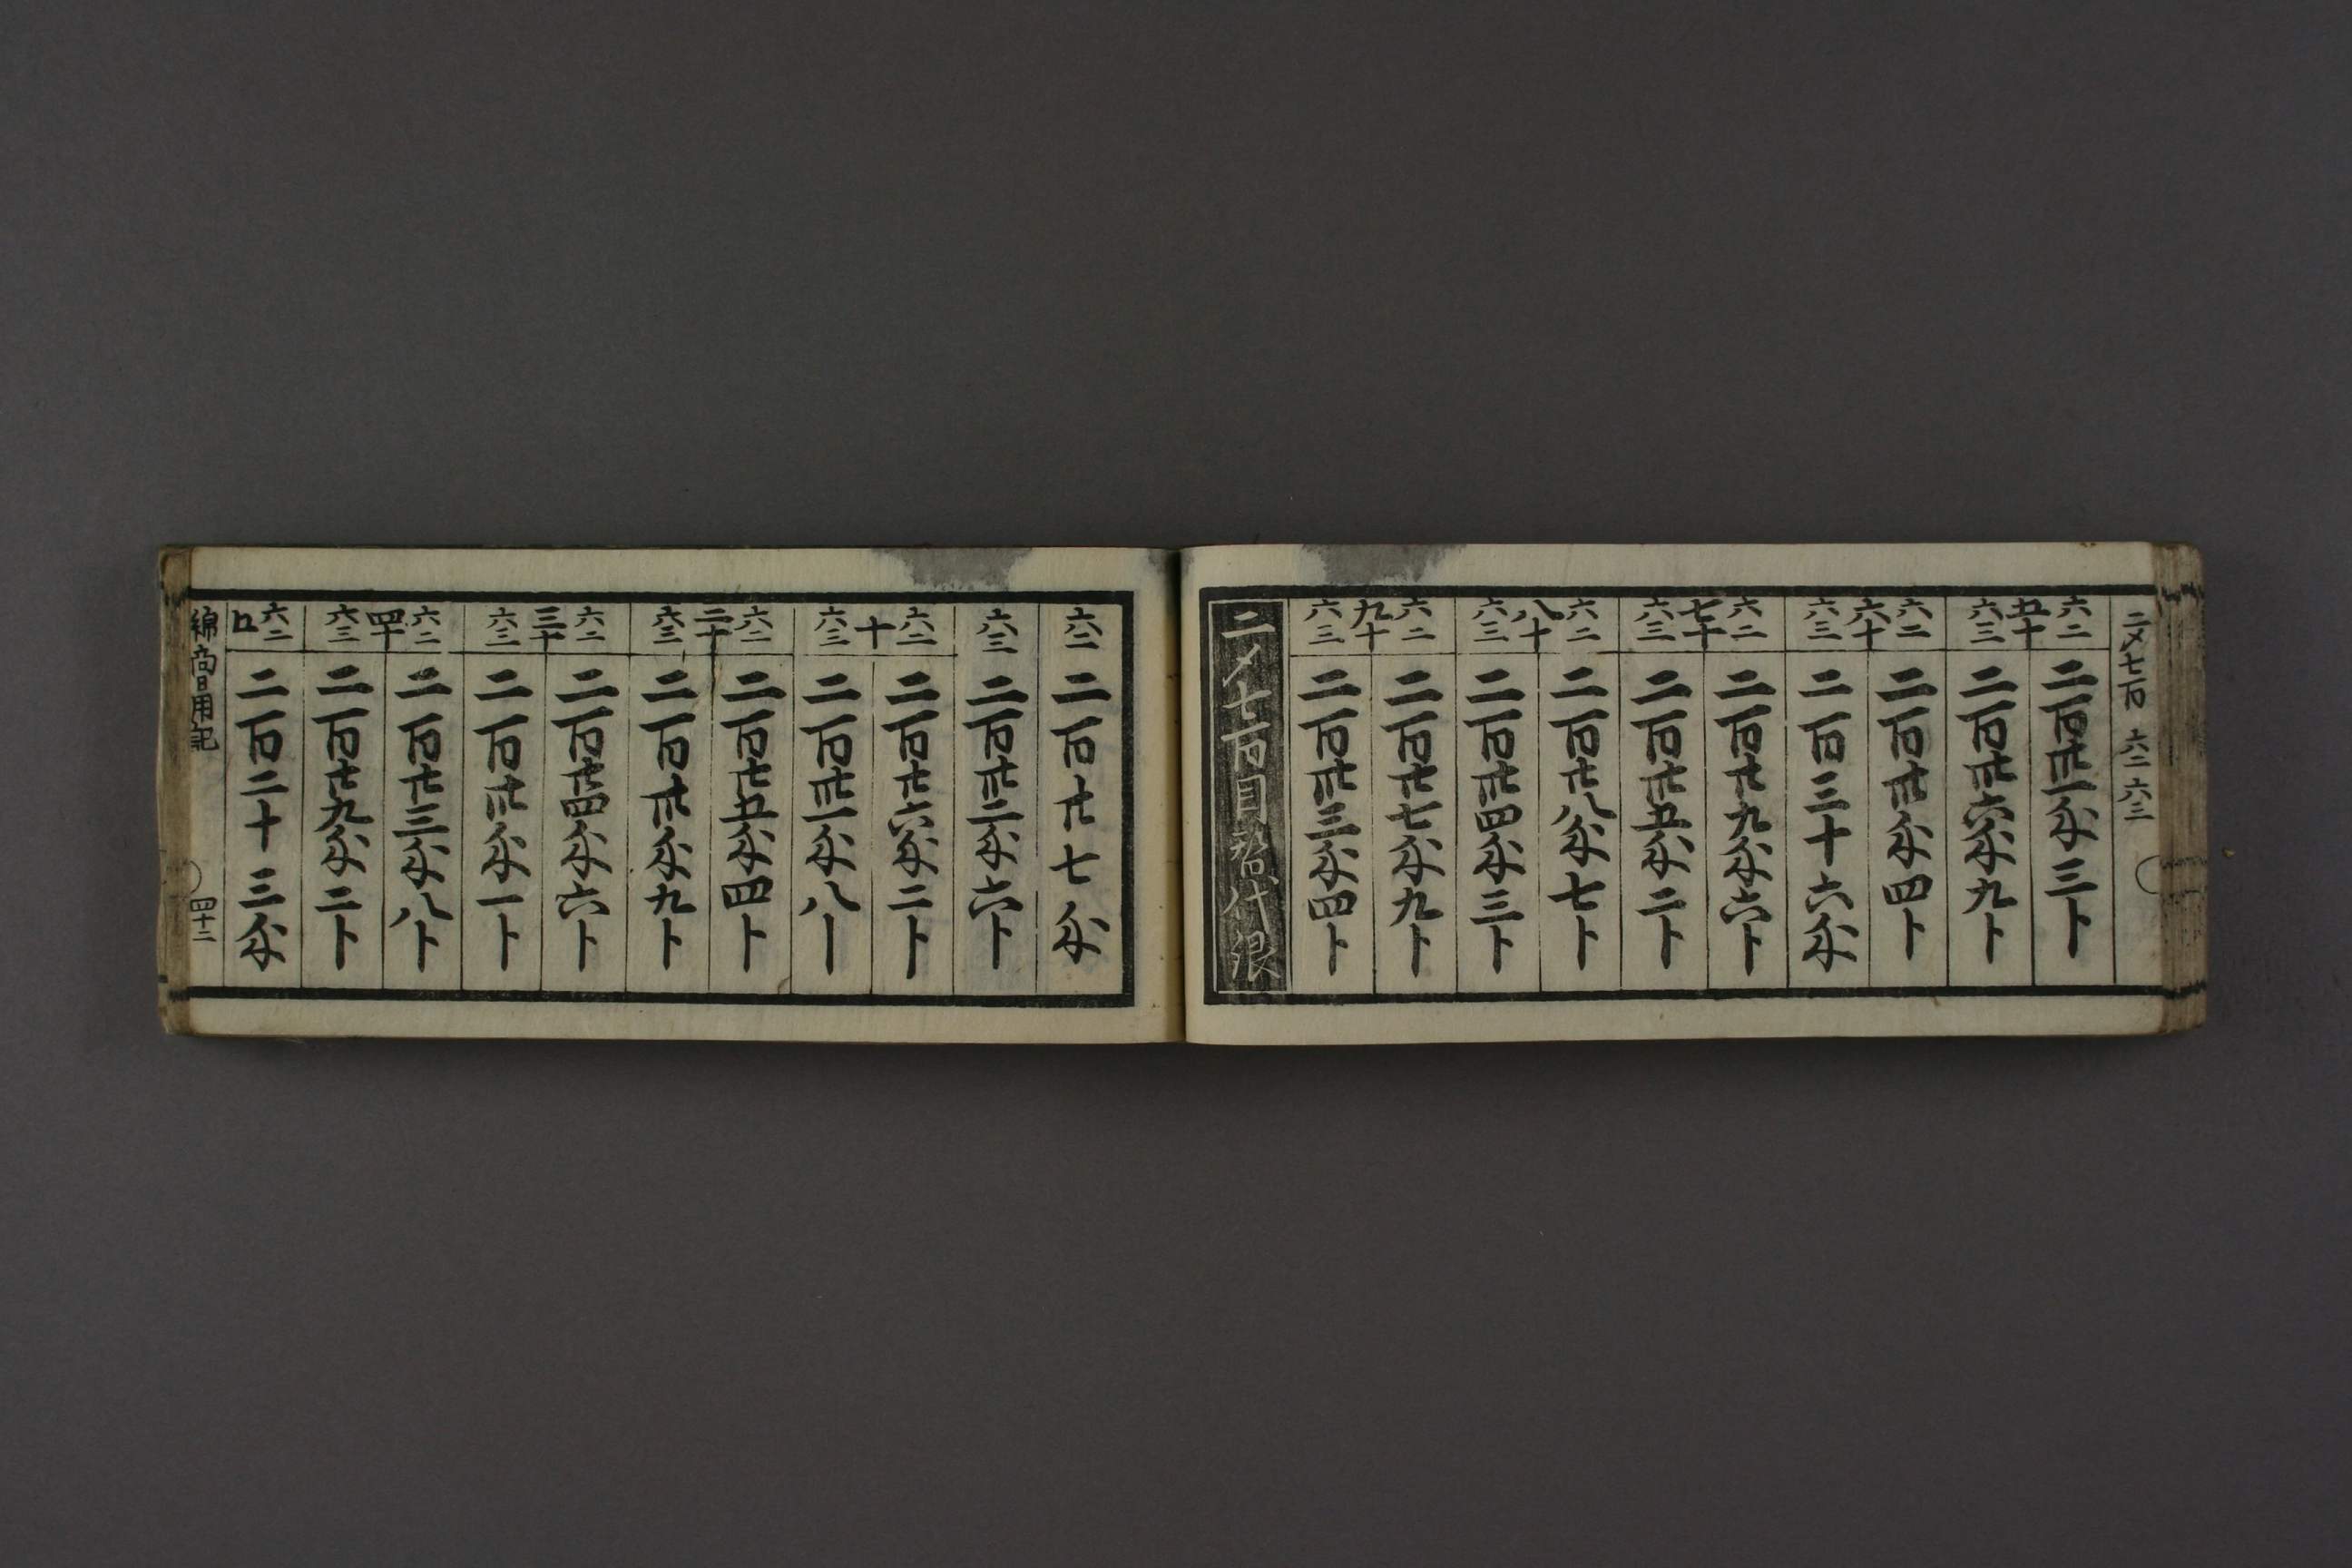 二〆七百 六二 六三
六二 二百卅一匁三卜
五十
六三 二百卅六匁九卜
六二 二百卅匁四卜
六十
六三 二百三十六匁
六二 二百廿九匁六卜
七十
六三 二百卅五匁二卜
六二 二百廿八匁七卜
八十
六三 二百卅四匁三卜
六二 二百廿七匁九卜
九十
六三 二百卅三匁四卜
二〆七百目替代銀
六二 二百廿七匁
六三 二百卅二匁六卜
六二 二百廿六匁二卜
十
六三 二百卅一匁八卜
六二 二百廿五匁四卜
二十
六三 二百卅匁九卜
六二 二百廿四匁六卜
三十
六三 二百卅匁一卜
六二 二百廿三匁八卜
四十
六三 二百廿九匁二卜
六二 二百二十三匁
綿商日用記 四十二